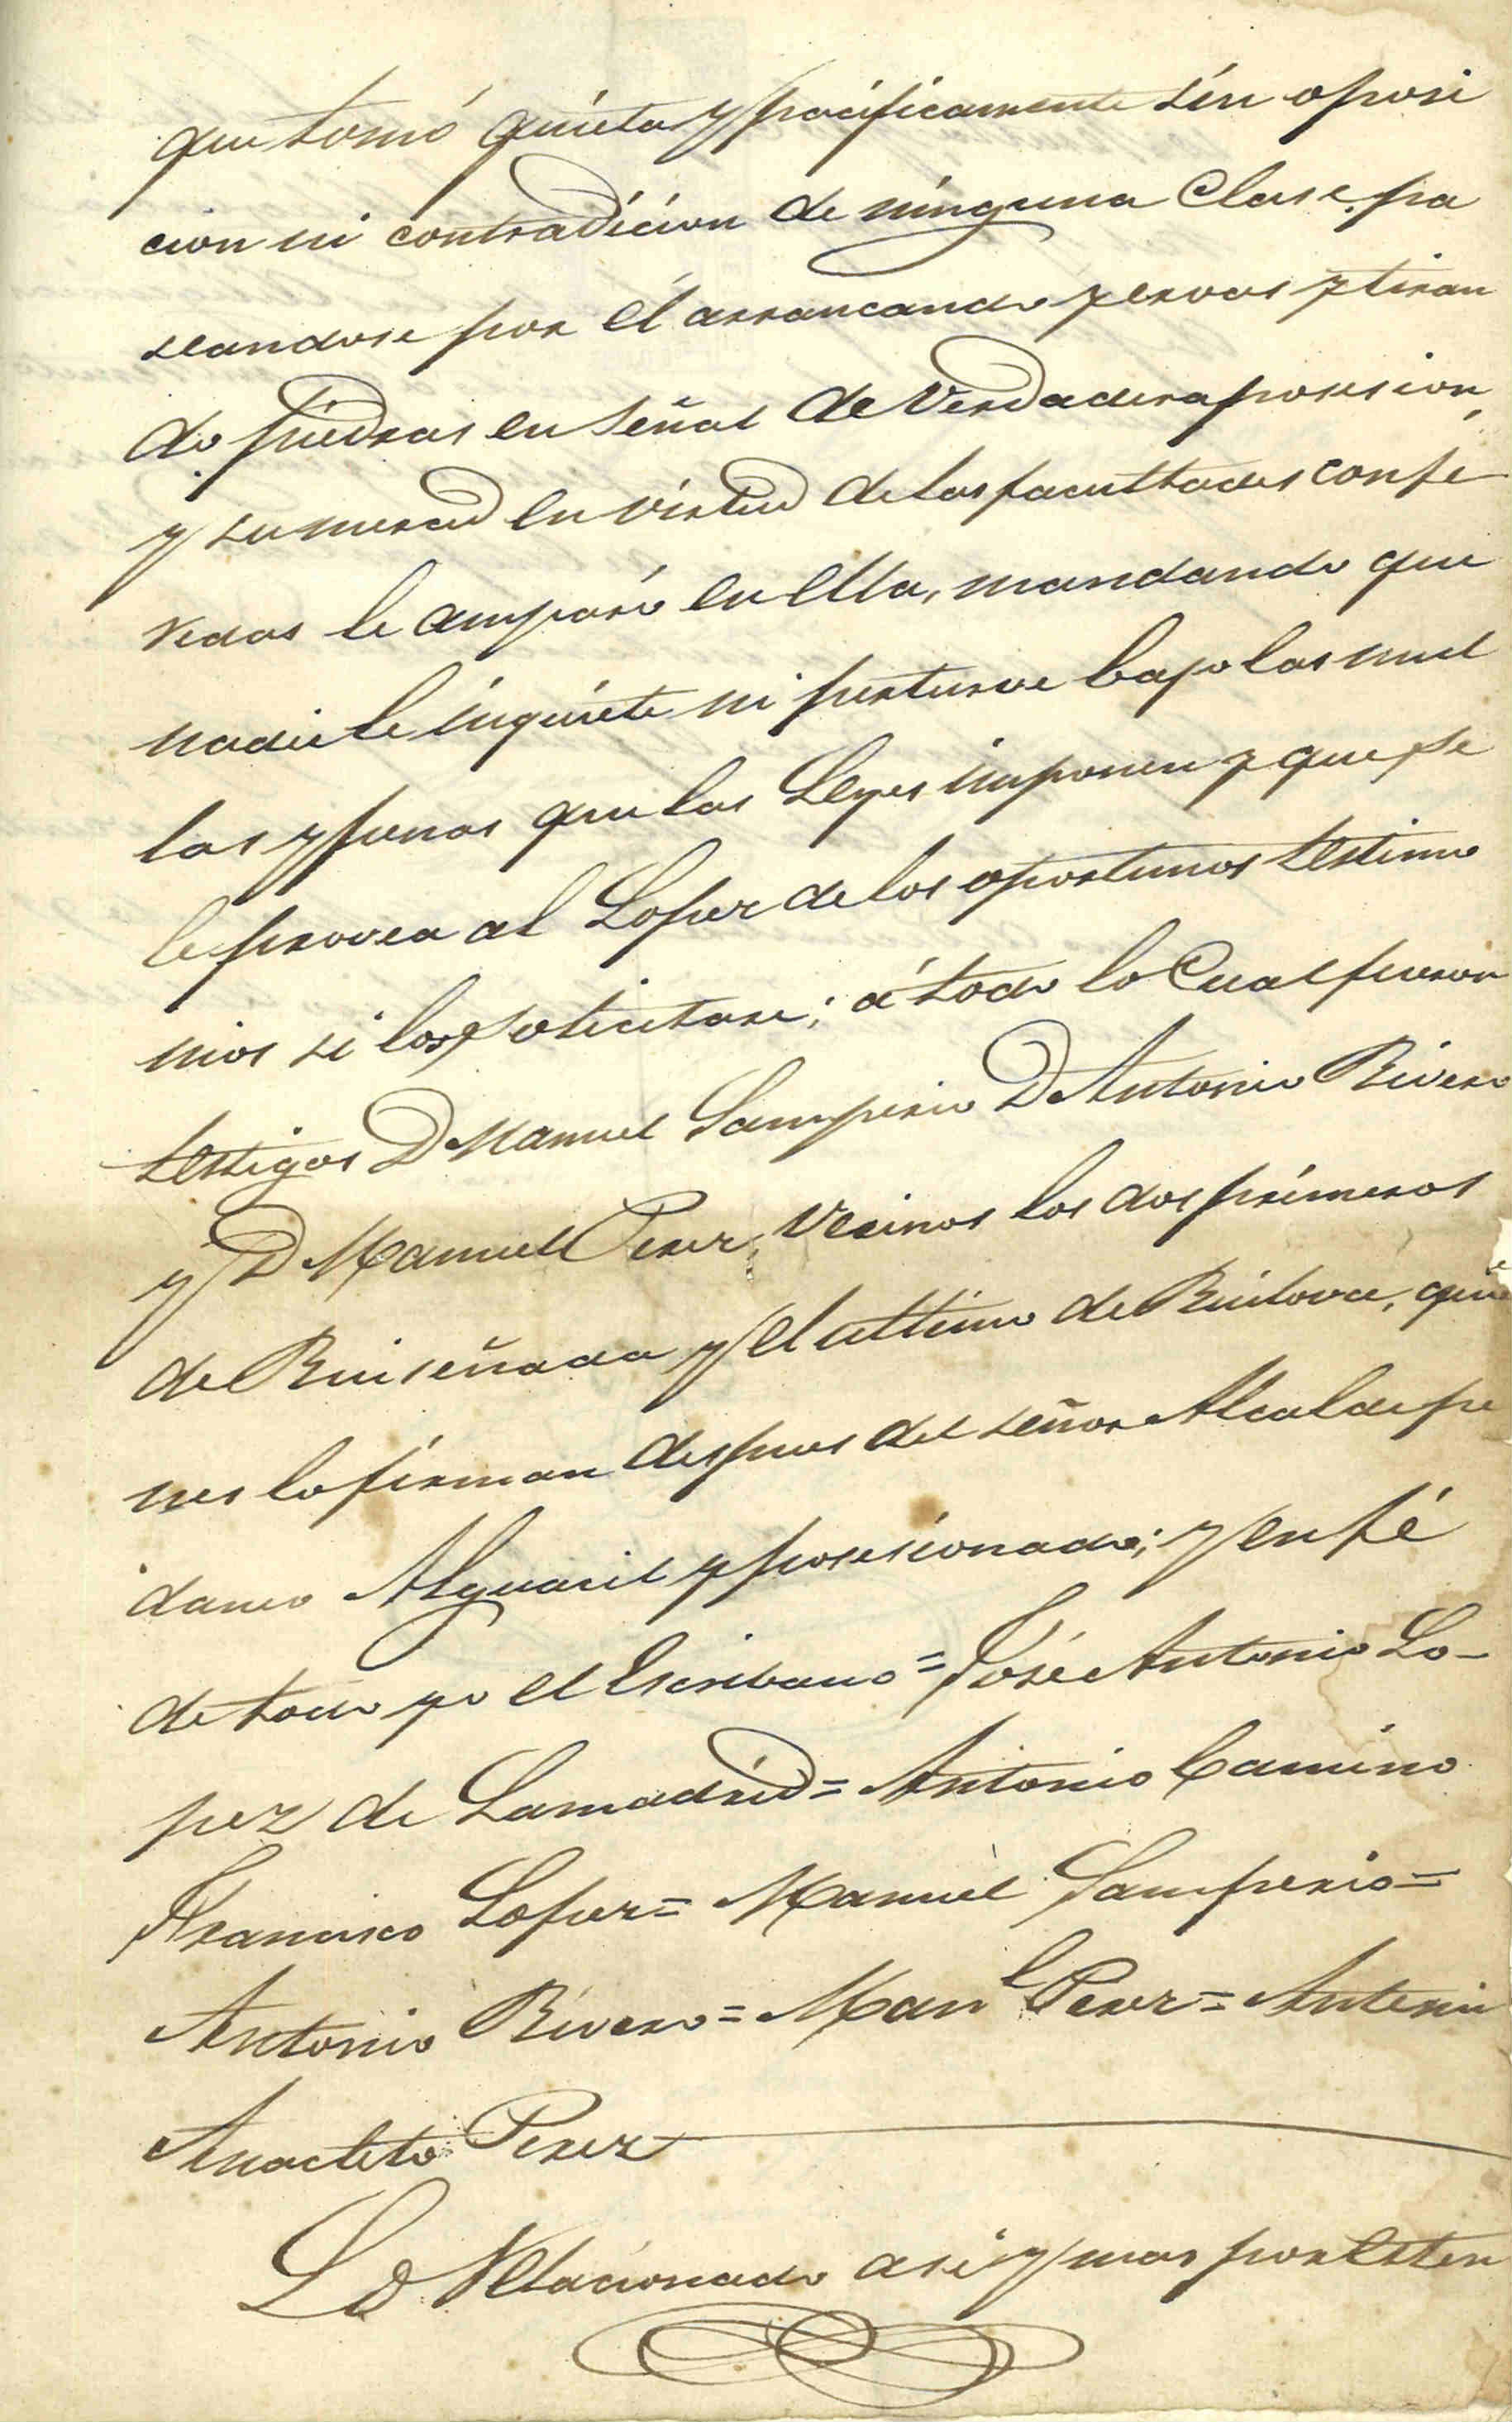 que tomó quieta y pacificamente sin oposi
cion ni contradicion de ninguna Clase, pa
seandose por él arrancando yervas y tiran
do piedras en señal de Verdadera posesion,
y su merced en virtud de las facultades confe
ridas le amparó en ella, mandando que
nadie le inquiete ni perturve bajo las mul
tas y penas que las Leyes imponen y que se
le provea al Lopez de los oportunos testimo
nios si los solicitare; á todo lo Cual fueron
testigos D Manuel Samperio D Antonio Rivero
y D Manuel Perez, Vecinos los dos primeros
de Ruiseñada y el ultimo de Ruilova, quie
nes lo firman despues del señor Alcalde pe
daneo Alguacil y posesionado; y en fé
de todo yo el Escribano = José Antonio Lo-
pez de Lamadrid = Antonio Camino
Francisco Lopez = Manuel Samperio =
Antonio Rivero = Man^l Perez = Antemi
Anacleto Perez
Lo Relacionado asi y mas por esten